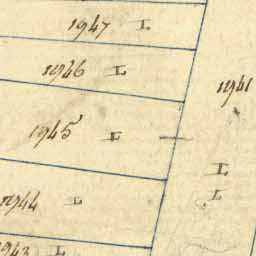 1947 L
1946 L
1941
1945 L
L
L
1944 L
1943 L